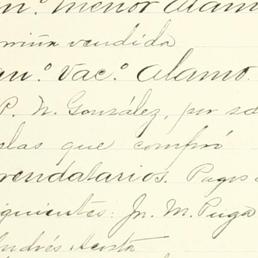 n.º menor Alamo
vendida
an.º Vac.º Alamo.
P. N. González, por
las que compró
rendatarios. Pagos
iguientes: Jn. M. Puga
Andrés Acosta